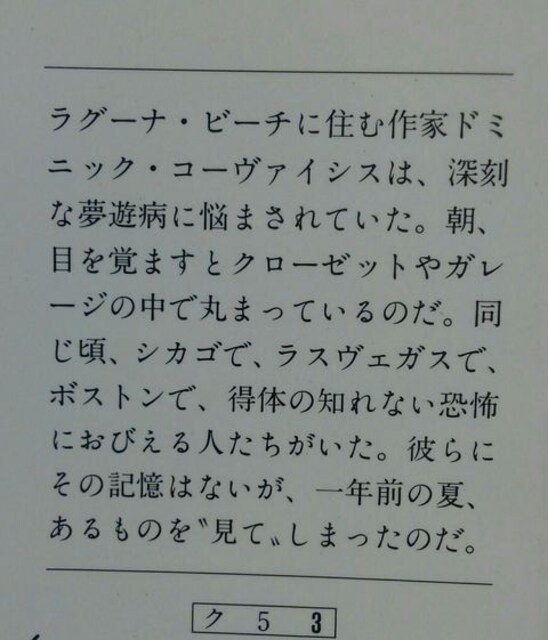 ラグーナ・ビーチに住む作家ドミ
ニック・コーヴァイシスは、深刻
な夢遊病に悩まされていた。朝、
目を覚ますとクローゼットやガレ
ージの中で丸まっているのだ。同
じ頃、シカゴで、ラスヴェガスで、
ボストンで、得体の知れない恐怖
におびえる人たちがいた。彼らに
その記憶はないが、一年前の夏、
あるものを〝見て〟しまったのだ。
ク 5 3